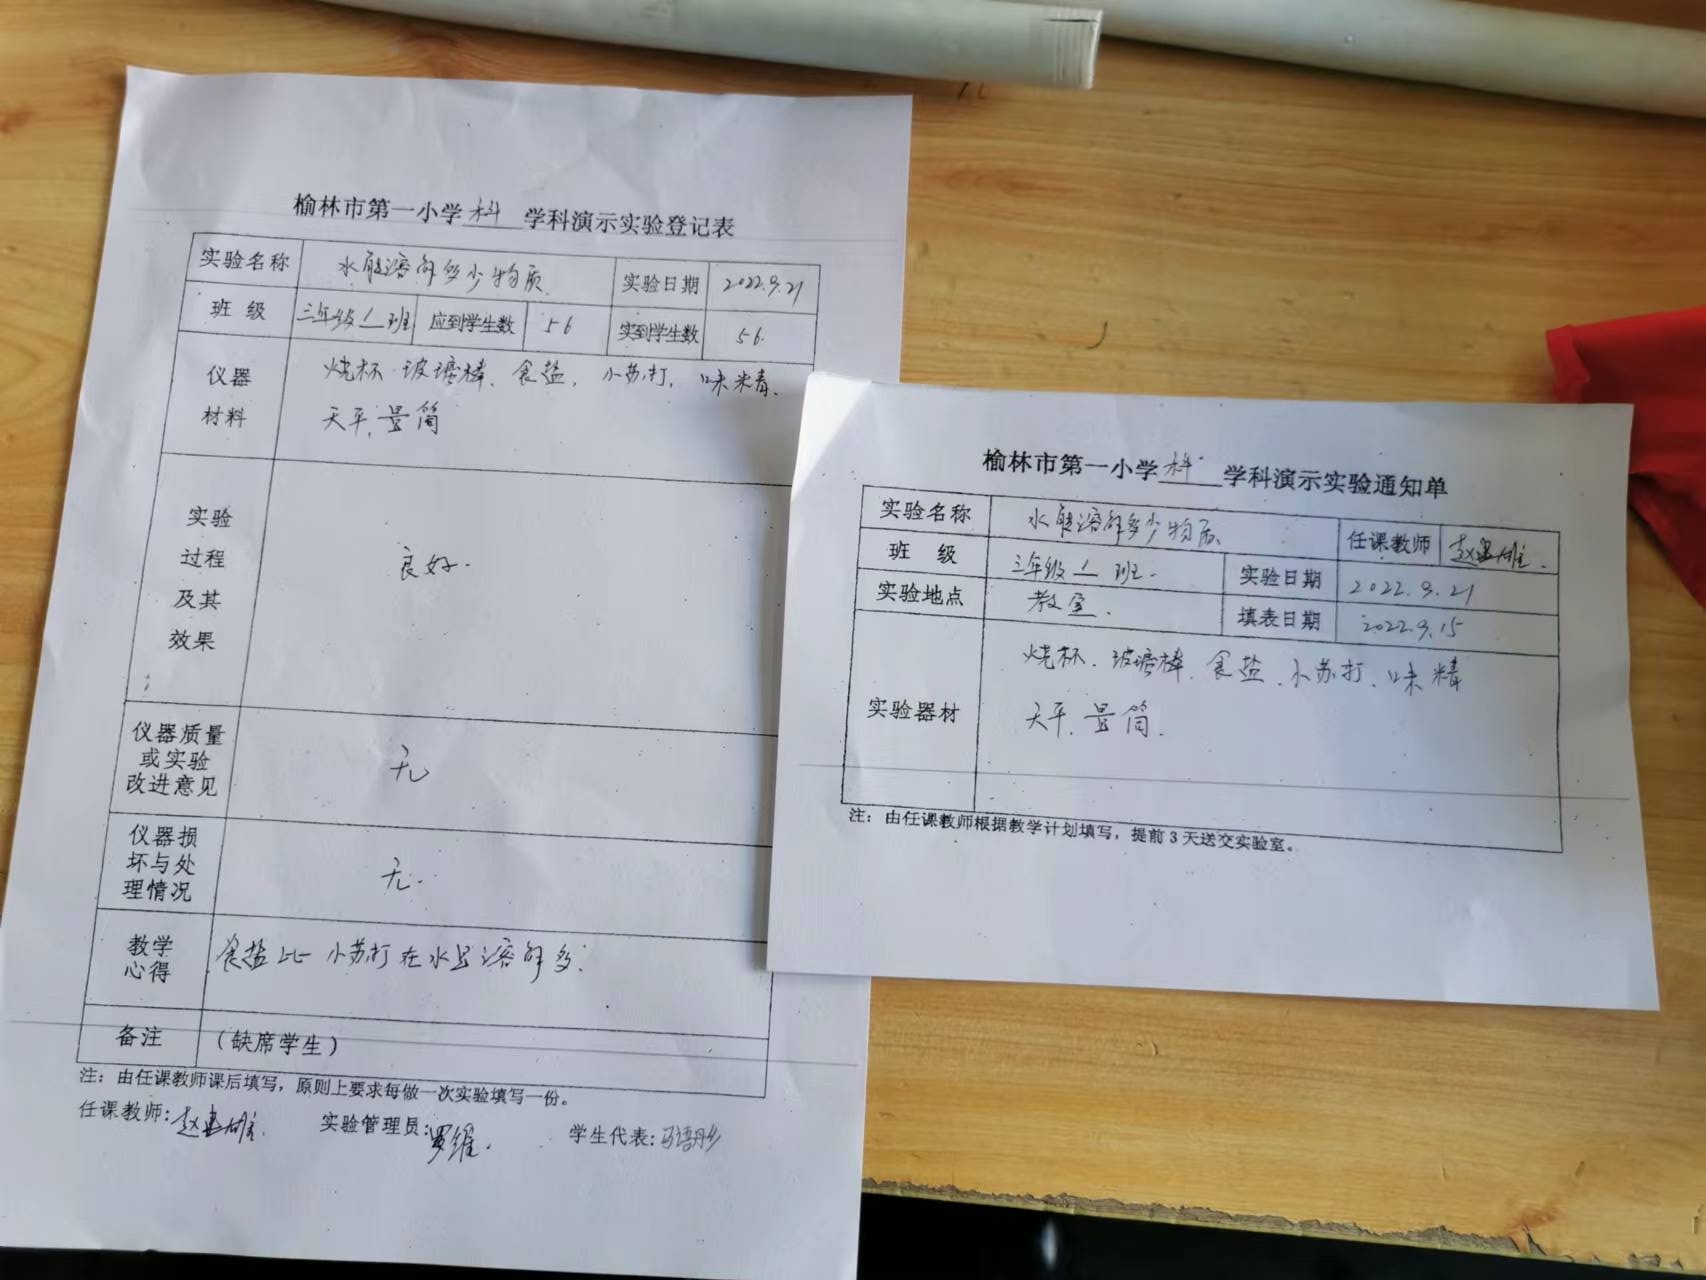 榆林市第一小学科学科演示实验登记表
实验名称 水能溶解多少物质 实验日期 2022.9.21
班 级 三年级1班 应到学生数 56 实到学生数 56.
仪器 烧杯.玻璃棒、食盐，小苏打，味精.
材料 天平，量筒
实验
过程 良好.
及其
效果
仪器质量
或实验 无
改进意见
仪器损
坏与处 无.
理情况
教学 食盐比小苏打在水里溶解多.
心得
备注 （缺席学生）
注：由任课教师课后填写，原则上要求每做一次实验填写一份。
任课教师: 实验管理员:罗维. 学生代表:
榆林市第一小学科学科演示实验通知单
实验名称 水能溶解多少物质. 任课教师
班 级 三年级1班. 实验日期 2022.9.21
实验地点 教室. 填表日期 2022.9.15
烧杯.玻璃棒、食盐、小苏打、味精
实验器材 天平，量筒.
注：由任课教师根据教学计划填写，提前3天送交实验室。